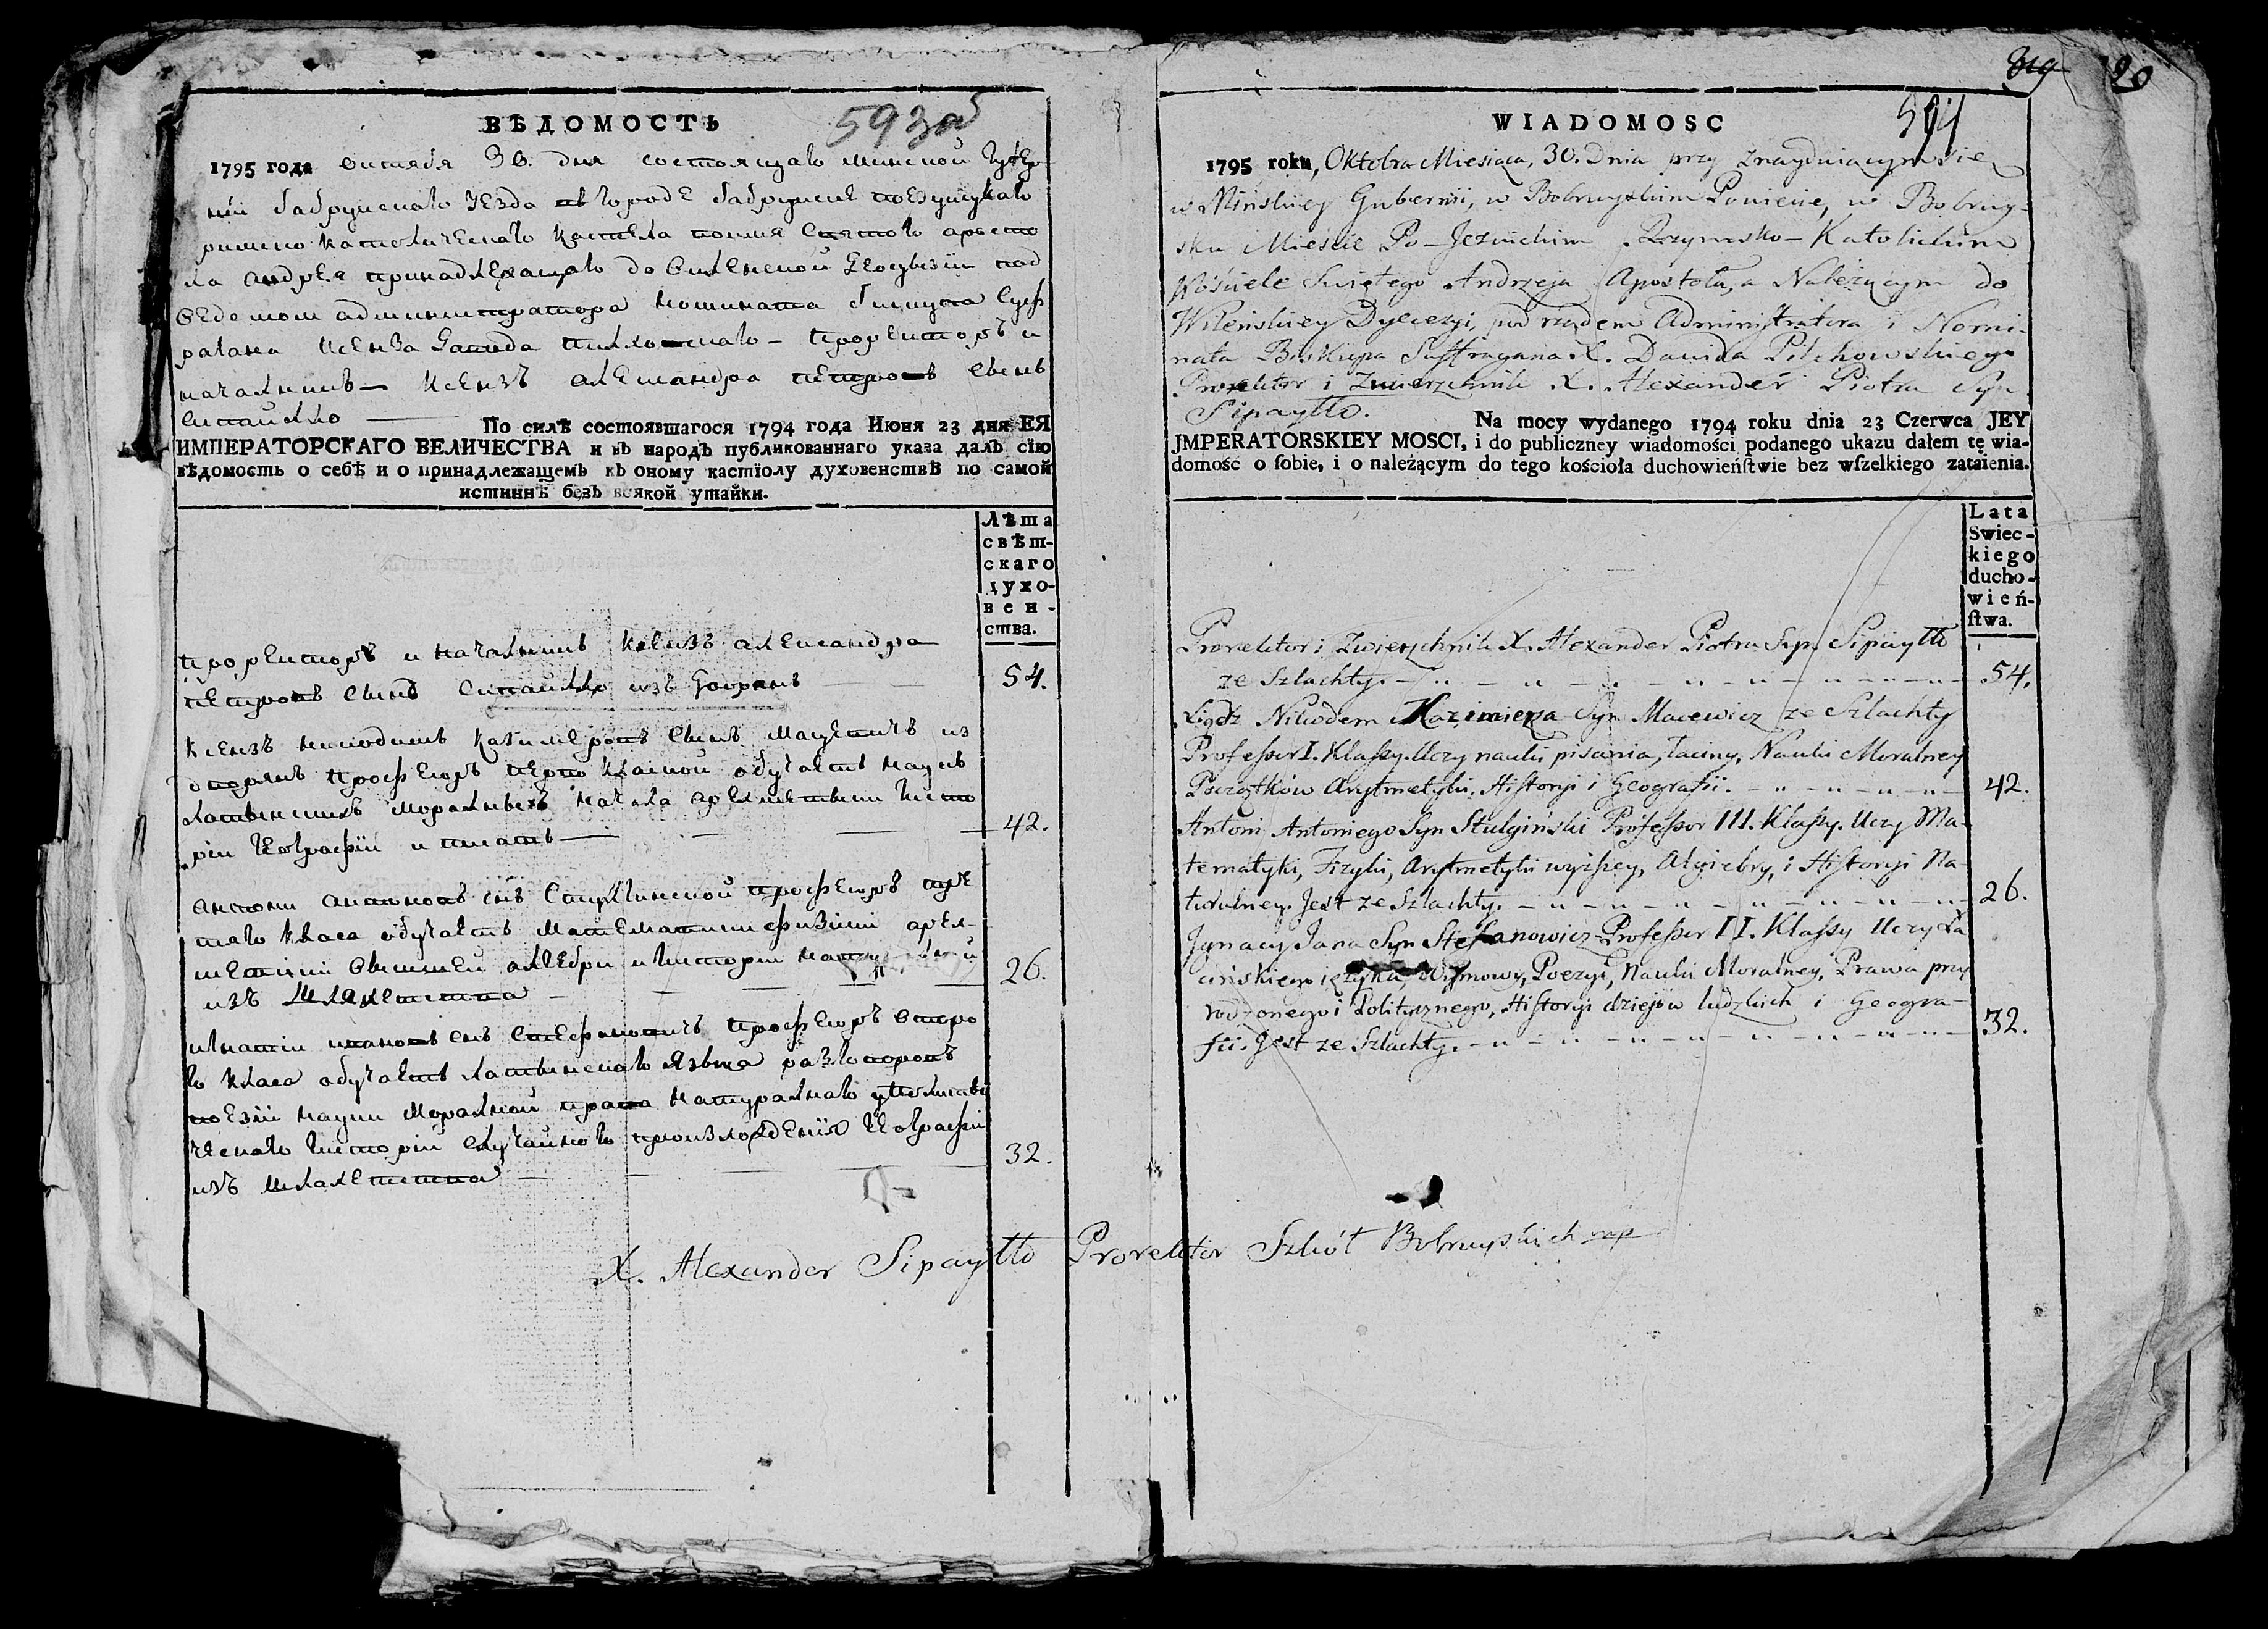 ВѢДОМОСТЬ
593 об
1795 года октября 30. дня состоящаго минской губер
нии бабруискаго уезда въ городе бабруиске поезуицкаго
римско католическаго кастела во имя святого апосто
ла андрея принадлежащаго до виленской
ведомом администратора номината бискупа суф
рагана ксенза давида пилховскаго – проректоръ и
началникъ – ксензъ александра петровъ сынъ
сипаилло
По силѣ состоявшагося 1794 года Июня 23 дня ЕЯ
ИМПЕРАТОРСКАГО ВЕЛИЧЕСТВА и въ народъ публикованнаго указа далъ сїю
вѣдомость о себѣ и о принадлежащемъ къ оному кастїолу духовенствѣ по самой
истиннѣ безъ всякой утайки.
Лѣта
свѣт-
скаго
духо-
вен-
ства.
проректоръ и началникъ ксензъ александра
петровъ сынъ сипаилло изъ дворянъ 54.
ксензъ никодимъ казимеровъ сынъ мацевичъ из
дворянъ професоръ перво класной обучаетъ наукъ
латынскихъ моралныхъ начала арехметыки гисто
рии географии и писать 42.
антони антоновъ снъ стулгинской професоръ тре
таго класа обучаетъ математики физики арех-
метики вышшей алгебри и гистории
изъ шляхетства 26.
игнатии ивановъ снъ стефановичъ професоръ второ
го класа обучаетъ латынскаго языка разговоровъ
поезии науки моралной права натуралнаго и политы
ческаго гистории случайного географии
изъ шляхетства 32.
X. Alexander Sipayłło Prorektor Szkół Bobruyskich mp
319 20
594
WIADOMOSC
1795 roku, Oktobra Miesiąca, 30. Dnia przy znayduiącym się
w Mińskiey Gubernii, w Bobruyskim Powiecie, w Bobruy-
sku Mieście Po-Jezuickim Rzymsko-Katolickim
Kościele Swiętego Andrzeja Apostoła, a Należącym do
Wileńskiey Dyecezyi, pod rządem Administratora i Nomi-
nata Biskupa Suffragana X. Dawida Pilchowskiego
Prorektor i Zwierzchnik X. Alexander Piotra Syn
Sipayłło.
Na mocy wydanego 1794 roku dnia 23 Czerwca JEY
JMPERATORSKIEY MOSCI, i do publiczney wiadomości podanego ukazu dałem tę wia-
domość o sobie, i o należącym do tego kościoła duchowieństwie bez wszelkiego zataienia.
Lata
Swiec-
kiego
ducho-
wień-
stwa.
Prorektor i Zwierzchnik X. Alexander Piotra Syn Sipayłło
ze Szlachty. 54.
Xiądz Nikodem Kazimierza Syn Macewicz ze Szlachty
Professor I. Klassy. Uczy nauki pisania, łaciny, Nauki Moralney
Początków Arytmetyki, Historyi i Geografii. 42.
Antoni Antoniego Syn Stulgiński Professor III. Klassy. Uczy Ma-
tematyki, Fizyki, Arytmetyki wyższey, Algiebry, i Historyi Na-
turalney. Jest ze Szlachty. 26.
Jgnacy Jana Syn Stefanowicz Professor II. Klassy Uczy Ła
cińskiego ięzyka, Wymowy, Poezyi, Nauki Moralney, Prawa przy
rodzonego i Politycznego, Historyi dziejów ludzkich i Geogra-
fii. Jest ze Szlachty. 32.